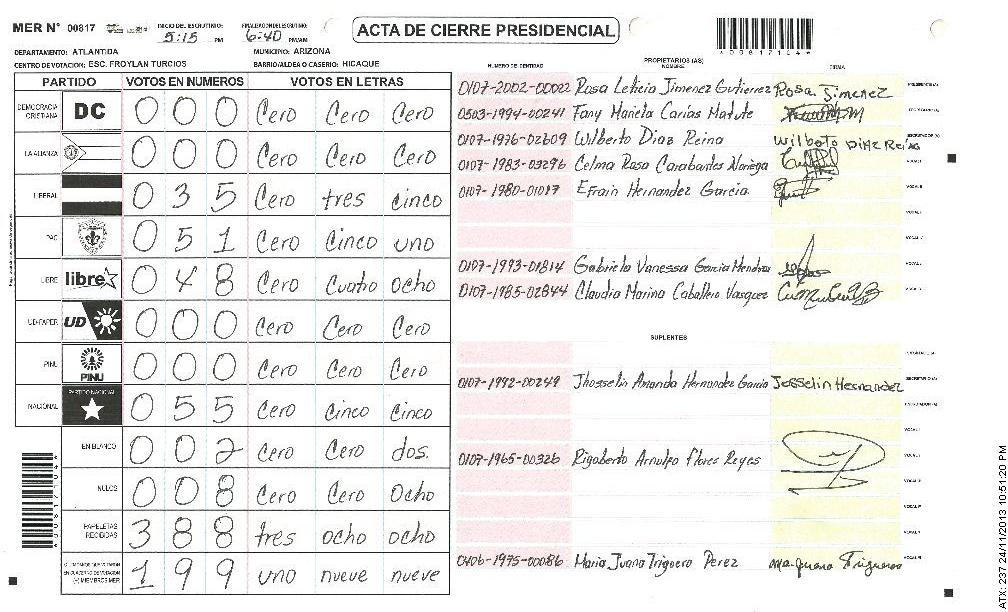 MER N° 00817
INICIO DEL ESCRUTINIO: 5:15 PM
FINALIZACION DEL ESCRUTINIO: 6:40 PM/AM
ACTA DE CIERRE PRESIDENCIAL
DEPARTAMENTO: ATLANTIDA
MUNICIPIO: ARIZONA
CENTRO DE VOTACION: ESC. FROYLAN TURCIOS
BARRIO/ALDEA O CASERIO: HICAQUE
PARTIDO VOTOS EN NUMEROS VOTOS EN LETRAS
DEMOCRACIA CRISTIANA DC 0 0 0 Cero Cero Cero
LA ALIANZA 0 0 0 Cero Cero Cero
LIBERAL 0 3 5 Cero tres cinco
PAC 0 5 1 Cero Cinco uno
LIBRE libre 0 4 8 Cero Cuatro ocho
UD-FAPER UD 0 0 0 Cero Cero Cero
PINU PINU 0 0 0 Cero Cero Cero
NACIONAL PARTIDO NACIONAL 0 5 5 Cero cinco Cinco
EN BLANCO 0 0 2 Cero Cero dos.
NULOS 0 0 8 Cero Cero Ocho
PAPELETAS RECIBIDAS 3 8 8 tres ocho ocho
CIUDADANOS QUE VOTARON EN CUADERNO DE VOTACION (+) MIEMBROS MER 1 9 9 uno nueve nueve
PROPIETARIOS (AS)
NUMERO DE IDENTIDAD NOMBRE FIRMA
0107-2002-00022 Rosa Leticia Jimenez Gutierrez Rosa Jimenez
0503-1994-00241 Fany Mariela Carias Matute
0107-1976-02609 Wilberto Diaz Reina
0107-1983-03296 Celma Rosa Carabantes Noriega
0107-1980-01017 Efrain Hernandez Garcia
0107-1993-01814 Gabriela Vanessa Garcia Mendoza
0107-1985-02844 Claudia Marina Caballero Vasquez
SUPLENTES
0107-1992-00249 Jhosselin Amanda Hernandez Garcia Josselin Hernandez
0107-1965-00326 Rigoberto Arnulfo Flores Reyes
0406-1975-00086 Maria Juana Triguero Perez
ATX: 237 24/11/2013 10:51:20 PM